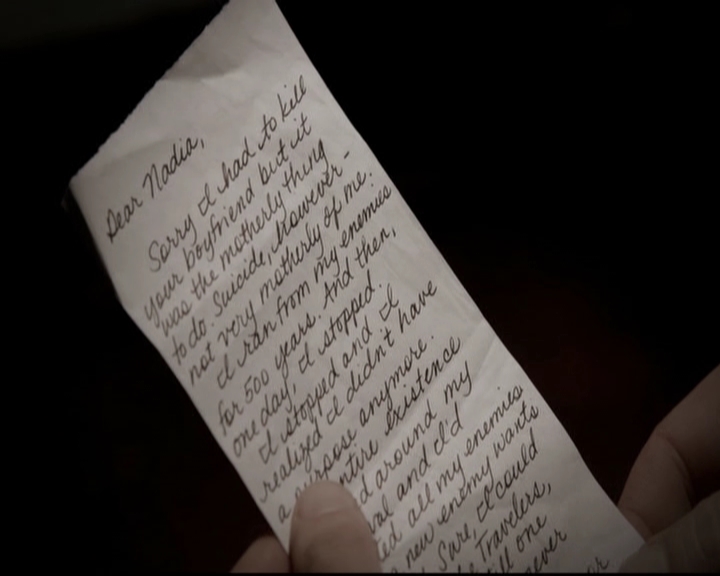 Dear Nadia,
Sorry I had to kill
your boyfriend but it
was the motherly thing
to do. Suicide, however-
not very motherly of me.
I ran from my enemies
for 500 years. And then,
one day, I stopped.
I stopped and I
realized I didn't have
a purpose anymore.
entire existence
around my
and I'd
all my enemies
new enemy wants
Sure, I could
Travelers,
one